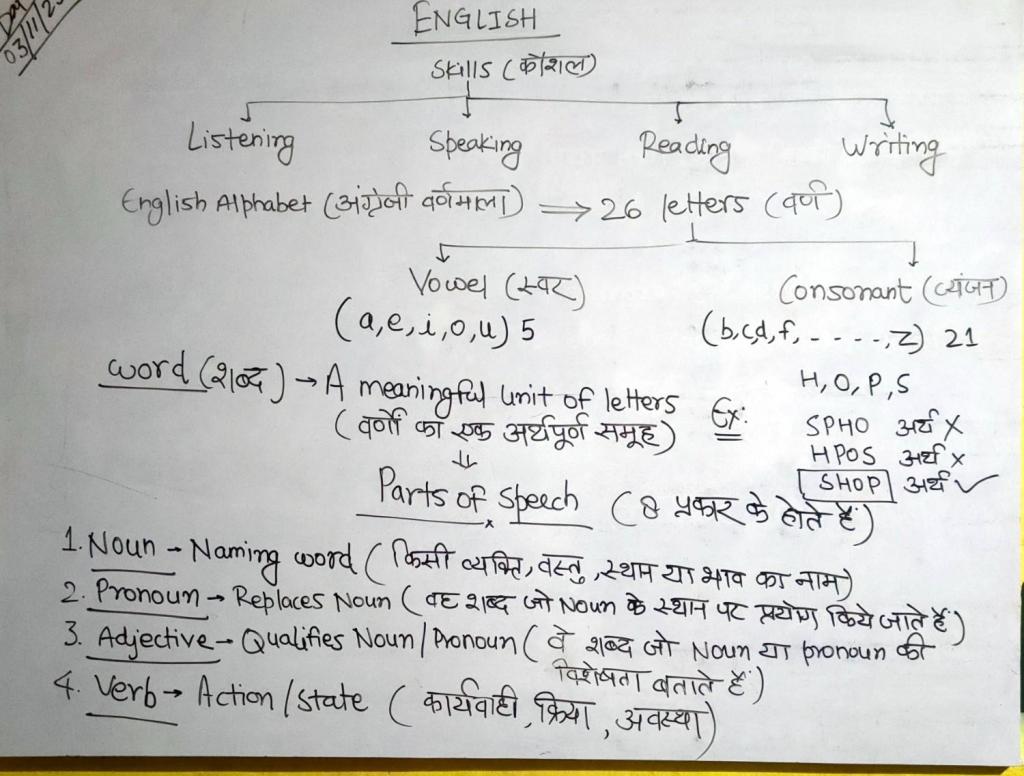 Day
03/11/2
ENGLISH
Skills (कौशल)
Listening Speaking Reading Writing
English Alphabet (अंग्रेजी वर्णमाला) ⇒ 26 letters (वर्ण)
Vowel (स्वर) Consonant (व्यंजन)
(a,e,i,o,u) 5 (b,c,d,f,-----,z) 21
word (शब्द) → A meaningful unit of letters
(वर्णों का एक अर्थपूर्ण समूह)
Ex: H,O,P,S
SPHO अर्थ ×
HPOS अर्थ ×
SHOP अर्थ ✓
Parts of Speech (8 प्रकार के होते हैं)
1. Noun - Naming word (किसी व्यक्ति, वस्तु, स्थान या भाव का नाम)
2. Pronoun → Replaces Noun (वह शब्द जो Noun के स्थान पर प्रयोग किये जाते हैं)
3. Adjective - Qualifies Noun/Pronoun (वे शब्द जो Noun या pronoun की
विशेषता बताते हैं)
4. Verb → Action/State (कार्यवाही, क्रिया, अवस्था)